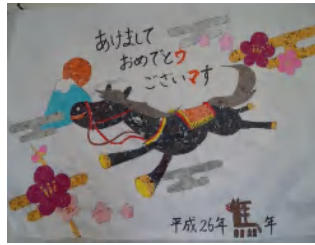 あけまして
おめでとウ
ございマす
平成26年 年